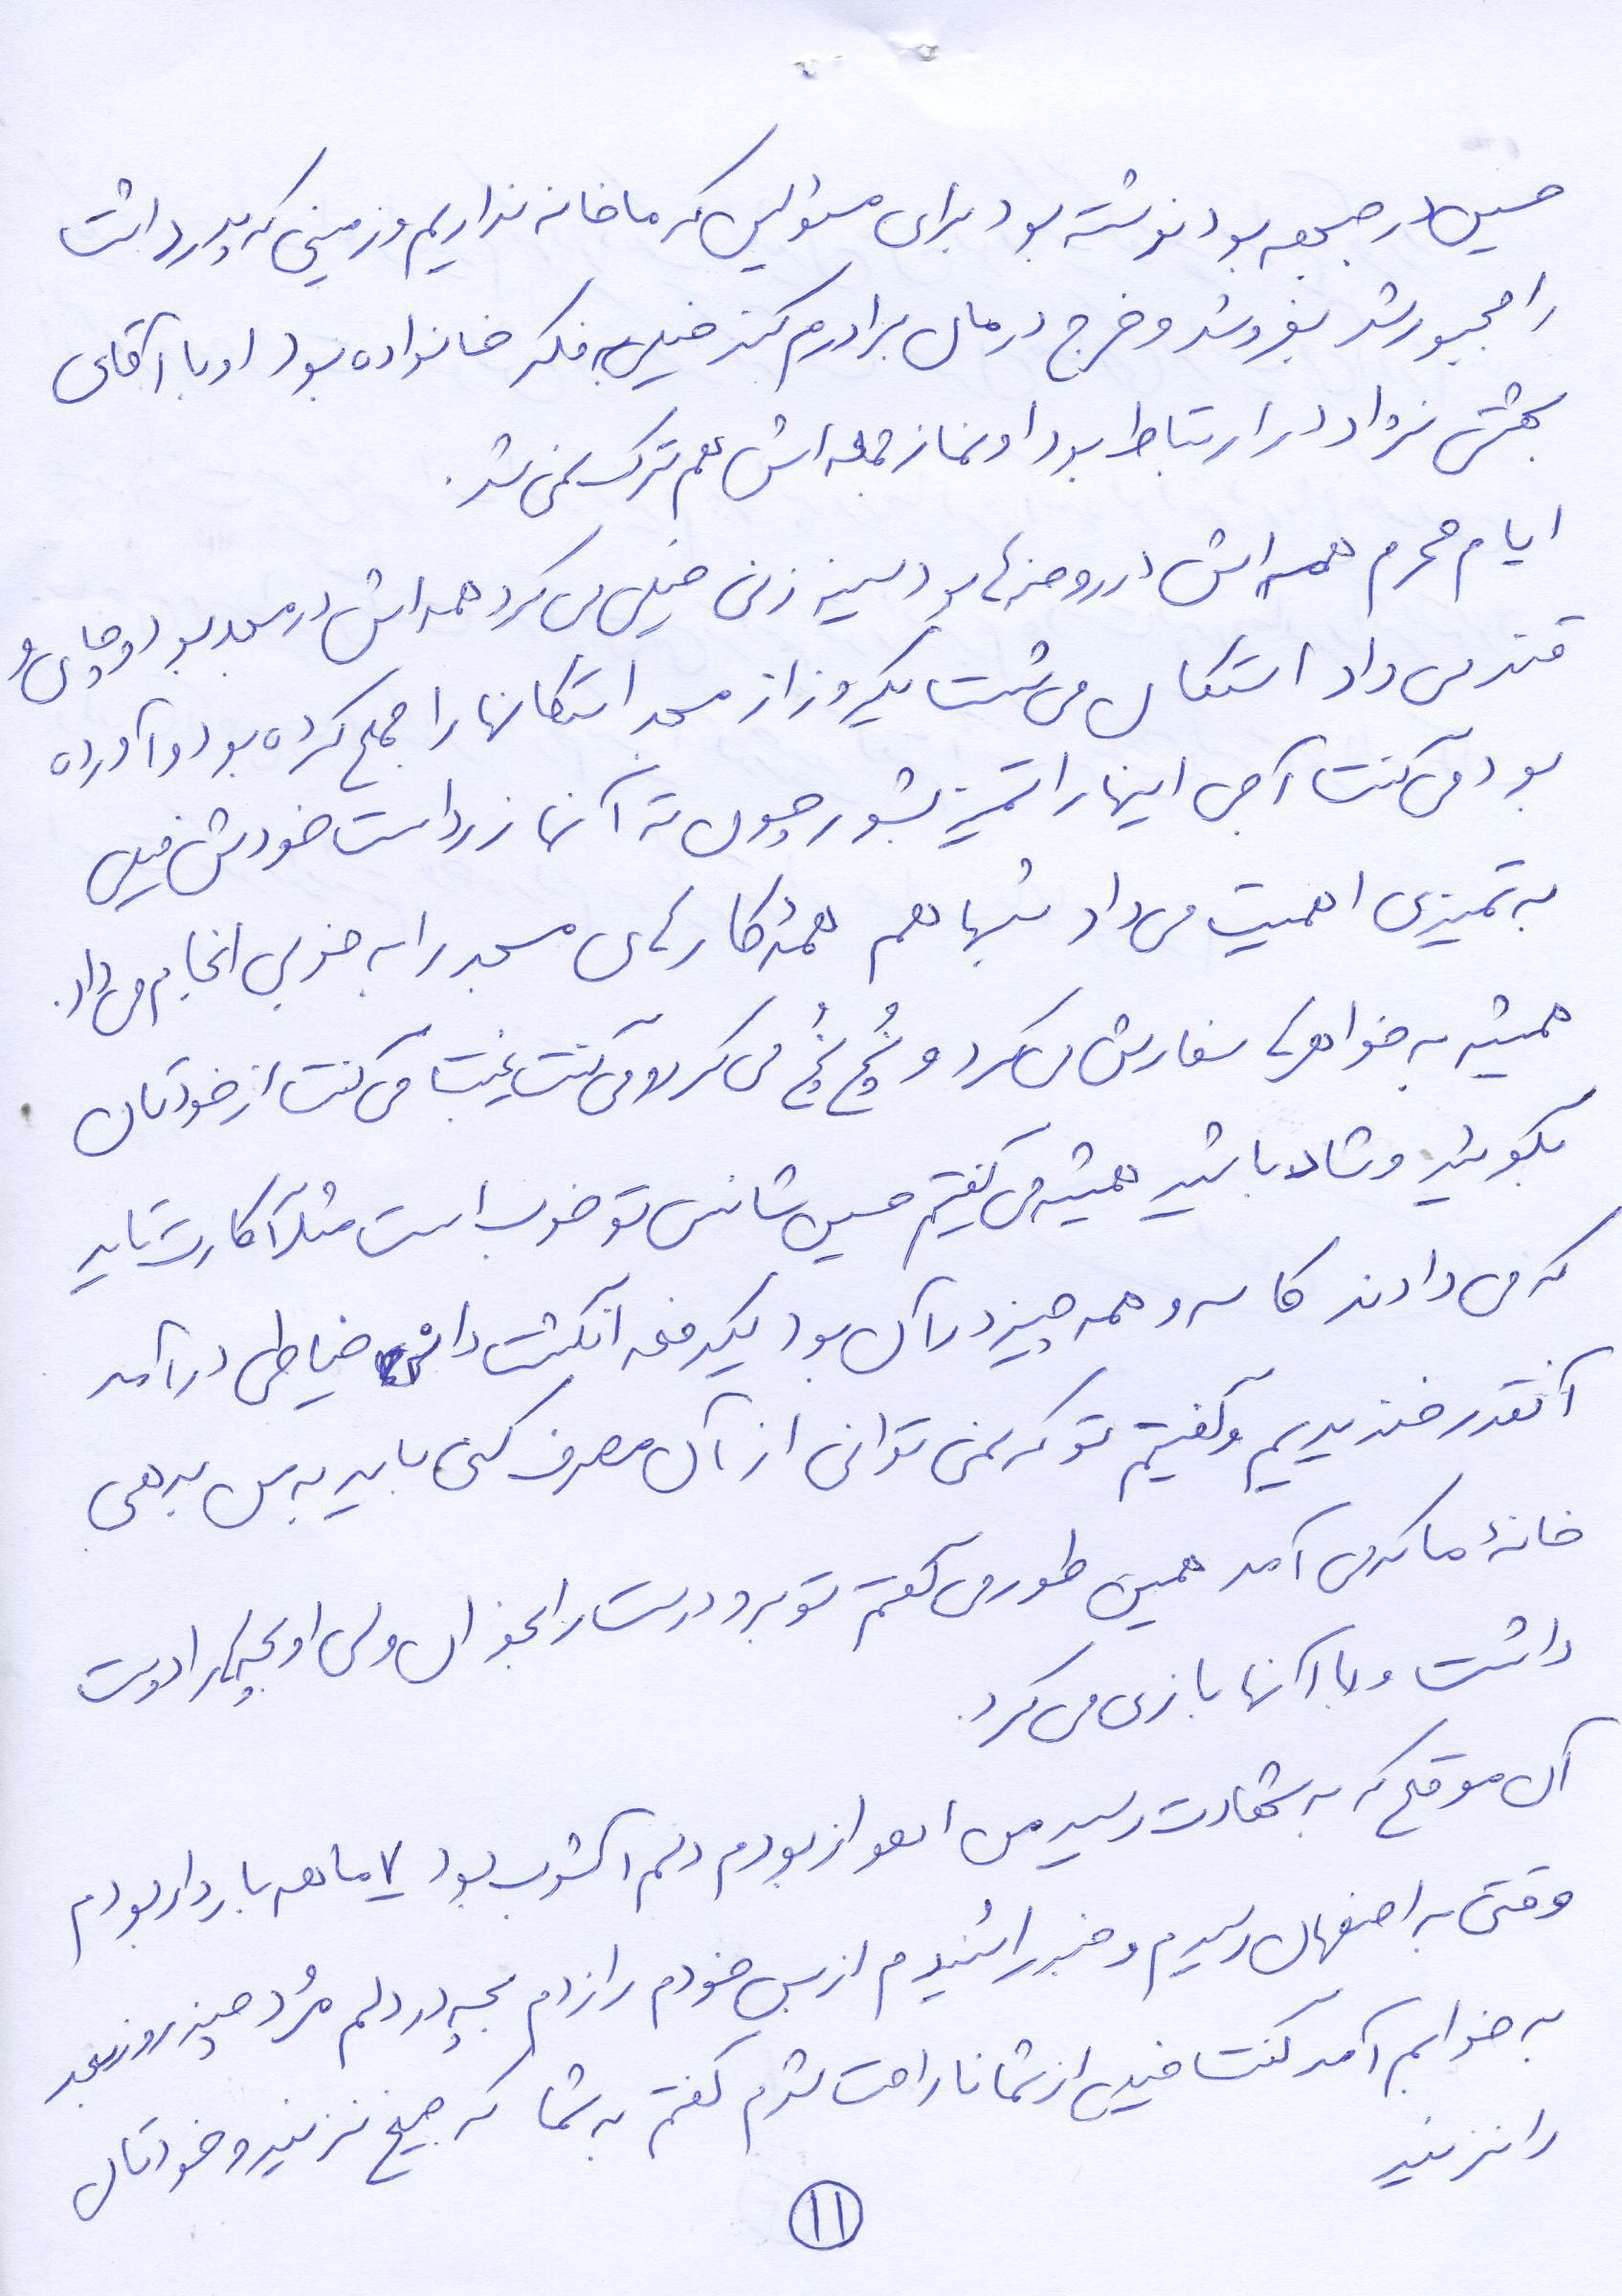 حسین در جبهه بود نوشته بود برای مسئولین که ما خانه نداریم و زمینی که پدر داشت
را مجبور شد بفروشد و خرج درمان برادرم کند خیلی به فکر خانواده بود او با آقای
بهشتی نژاد در ارتباط بود او نماز جمعه اش هم ترک نمی شد.
ایام محرم همه اش در روضه ها بود سینه زنی خیلی می کرد همه اش در مسجد بود و چای و
قند می داد استکان می شست یکروز از مسجد استکانها را جمع کرده بود و آورده
بود می گفت آجی اینها را تمیز بشور چون ته آنها زرد است خودش خیلی
به تمیزی اهمیت می داد شبها هم همۀ کارهای مسجد را به خوبی انجام می داد.
همیشه به خواهرها سفارش می کرد و نُچ نُچ می کرد و می گفت غیبت می گفت از خودتان
بگوئید و شاد باشید همیشه می گفتیم حسین شانس تو خوب است مثلاً کارت تاید
که می دادند کاسه و همه چیز در آن بود یکدفعه انگشت دانه خیاطی درآمد
آنقدر خندیدیم و گفتیم تو که نمی توانی از آن مصرف کنی باید به من بدهی
خانۀ ما که می آمد همین طور می گفتم تو برو درست را بخوان ولی او بچه ها را دوست
داشت و با آنها بازی می کرد.
آن موقع که به شهادت رسید من اهواز بودم دلم آشوب بود ۷ ماهه باردار بودم
وقتی به اصفهان رسیدم و خبر را شنیدم از بس خودم را زدم بچه در دلم مُرد چند روز بعد
به خوابم آمد گفت خیلی از شما ناراحت شدم گفتم به شما که جیغ نزنید و خودتان
را نزنید
۱۱